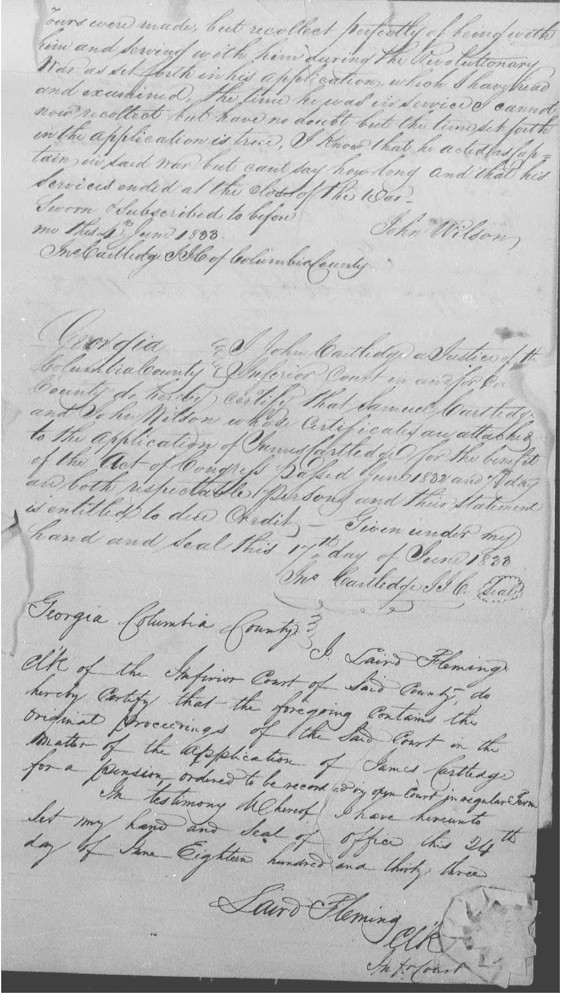 Tours were made, but recollect perfectly of being with
him and serving with him during the Revolutionary
War as set forth in his application, which I have read
and examined, the time he was in service I cannot
now recollect but have no doubt but the time set forth
in the application is true, I know that he acted as Cap=
tain in said war but cant say how long and that his
services ended at the close of the War—
Sworn & Subscribed to before
me this 4th June 1833.
John Wilson
Jno Cartledge J.I.C of Columbia County
Georgia } I John Cartledge a Justice of th
Columbia County } Inferior Court in and for
County do hereby certify that Samuel Cartledge
and John Wilson whose certificates are attached
to the application of James Cartledge for the benefit
of the Act of Congress Passed June 1832 and 7th day
are both respectable persons and their Statement
is entitled to due credit — Given under my
hand and Seal this 17th day of June 1833
Jno Cartledge J.I.C. Seal
Georgia Columbia County }
I, Laird Fleming
Clk of the Inferior Court of Said County, do
hereby Certify that the foregoing Contains the
original Proceedings of the Said Court on the
Matter of the Application of James Cartledge
for a pension, ordered to be recorded by open Court in regular Term
In testimony Whereof I have hereunto
Set my hand and Seal of office this 24th
day of June Eighteen hundred and thirty three
Laird Fleming
Clk
Inf. Court